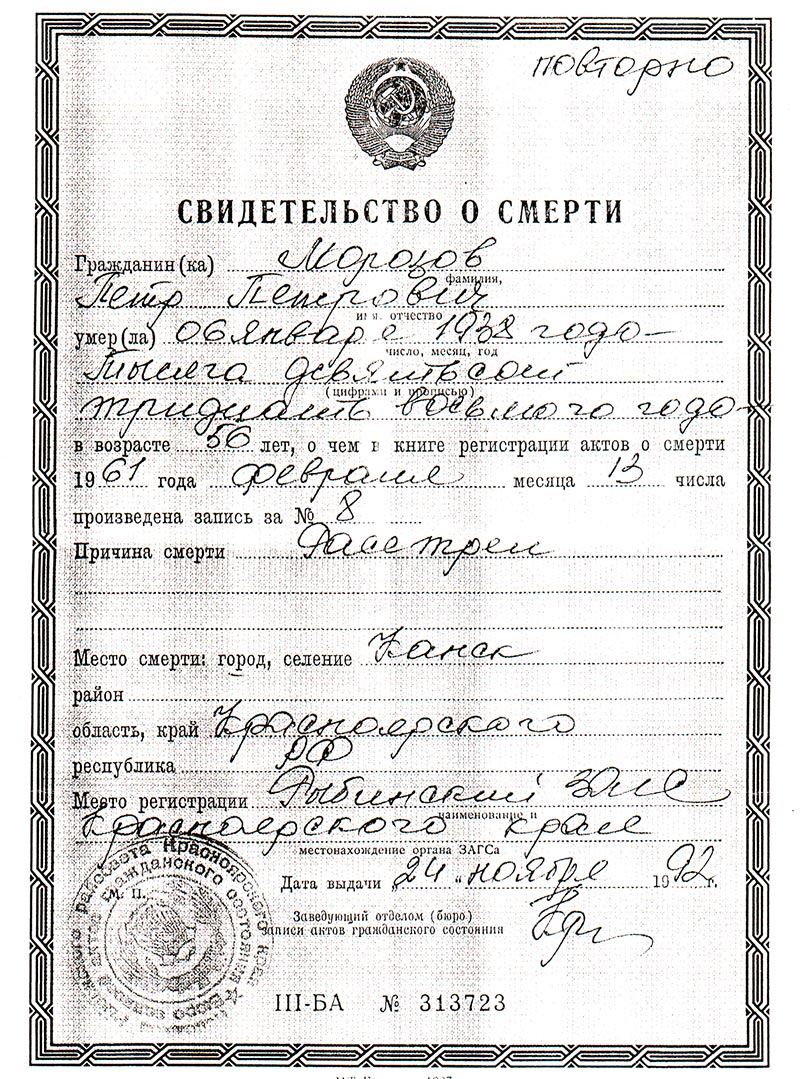 повторно
СВИДЕТЕЛЬСТВО О СМЕРТИ
Гражданин(ка) Морозов
фамилия,
Петр Петрович
имя, отчество
умер(ла) 06 января 1938 года
число, месяц, год
тысяча девятьсот
(цифрами и прописью)
тридцать восьмого года
в возрасте 56 лет, о чем в книге регистрации актов о смерти
1961 года февраля месяца 13 числа
произведена запись за № 8
Причина смерти Расстрел
Место смерти: город, селение Канск
район
область, край Красноярского
республика РФ
Место регистрации Рыбинский ЗАГС
наименование и
Красноярского края
местонахождение органа ЗАГСа
Дата выдачи „24“ ноября 1992 г.
Заведующий отделом (бюро)
записи актов гражданского состояния
М. П.
райсовета Красноярского края
актов гражданского состояния
III-БА № 313723